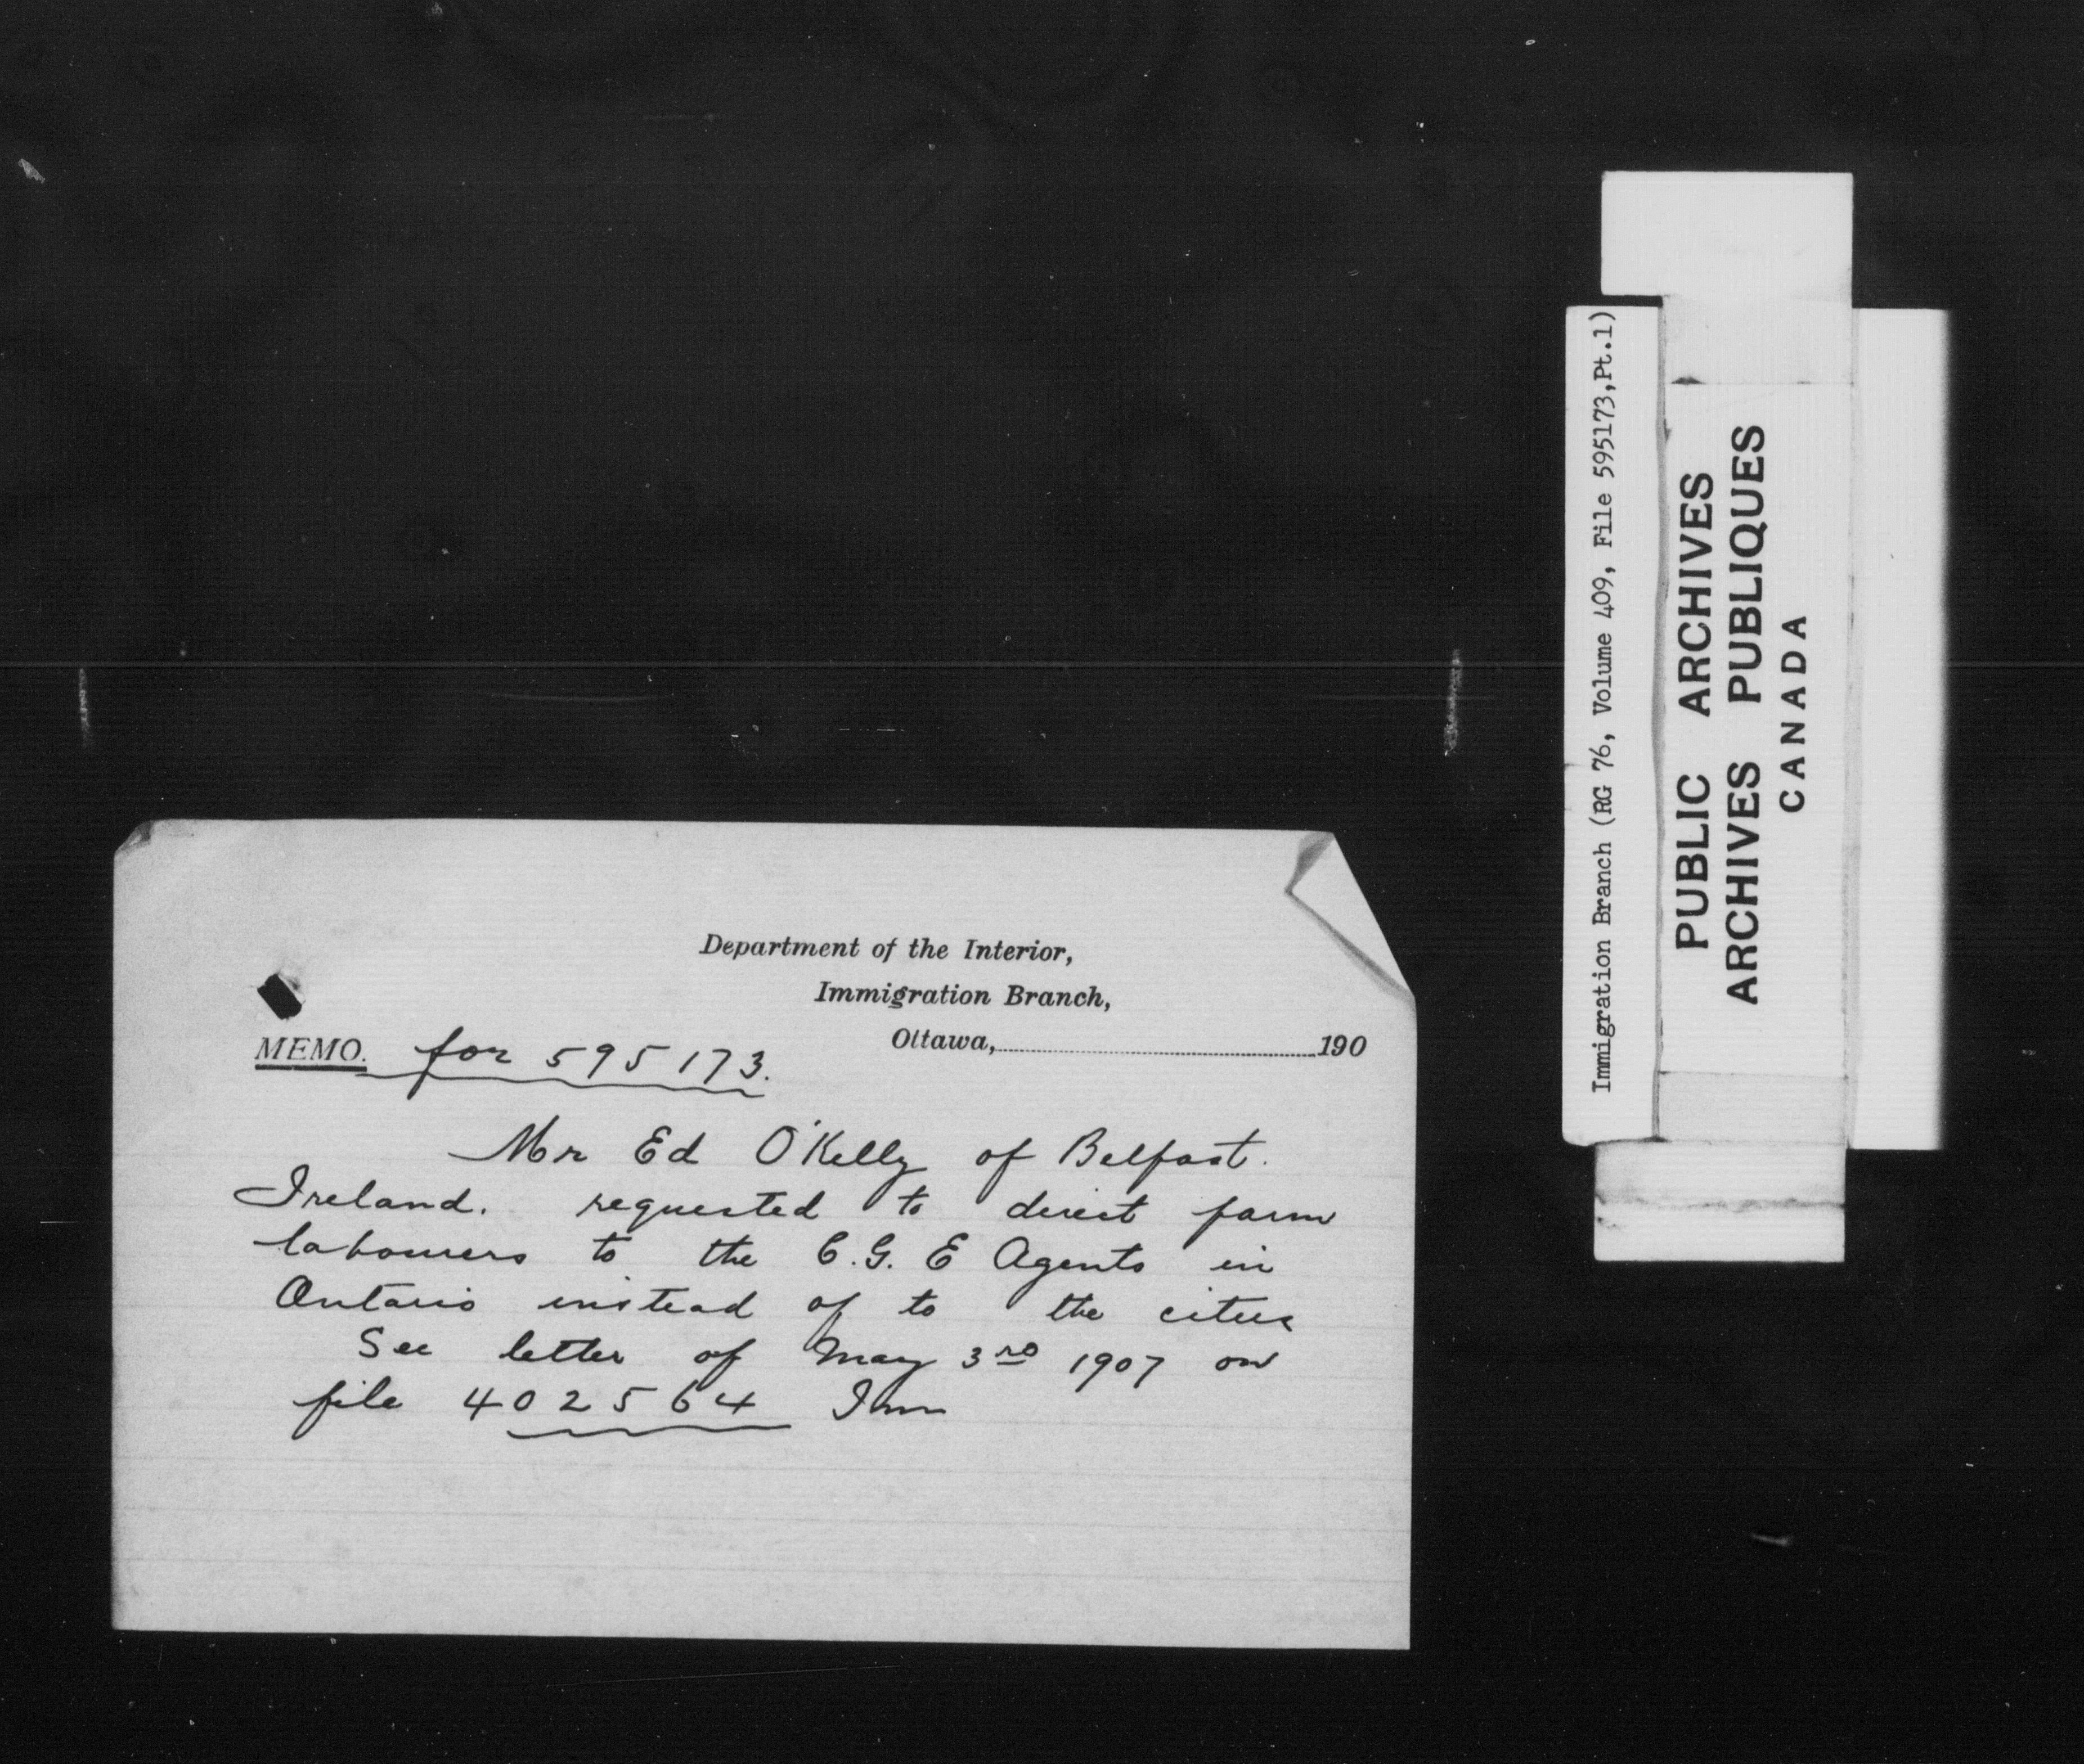 Department of the Interior,
Immigration Branch,
Ottawa,..............................190
MEMO. for 595173.
Mr Ed O'Kelly of Belfast.
Ireland. requested to direct farm
labourers to the C.G.E Agents in
Ontario instead of to the cities
See letter of May 3rd 1907 on
file 402564 Imm
Immigration Branch (RG 76, Volume 409, File 595173,Pt.1)
PUBLIC ARCHIVES
ARCHIVES PUBLIQUES
CANADA